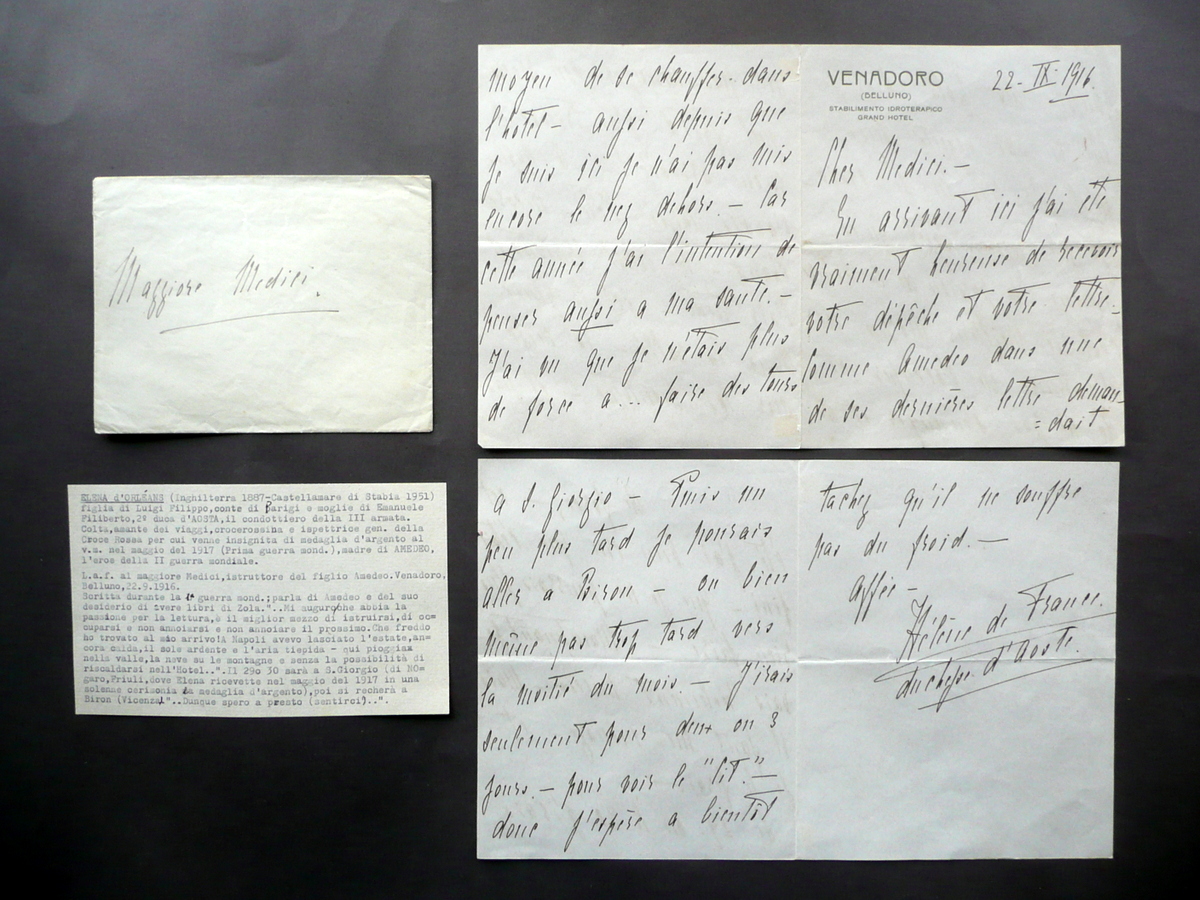 Maggiore Medici.
ELENA d'ORLÉANS (Inghilterra 1887-Castellamare di Stabia 1951)
figlia di Luigi Filippo,conte di Parigi e moglie di Emanuele
Filiberto,2º duca d'AOSTA,il condottiero della III armata.
Colta,amante dei viaggi,crocerossina e ispettrice gen. della
Croce Rossa per cui venne insignita di medaglia d'argento al
v.m. nel maggio del 1917 (Prima guerra mond.),madre di AMEDEO,
l'eroe della II guerra mondiale.
L.a.f. al maggiore Medici,istruttore del figlio Amedeo.Venadoro,
Belluno,22.9.1916.
Scritta durante la guerra mond.;parla di Amedeo e del suo
desiderio di avere libri di Zola."..Mi auguro che abbia la
passione per la lettura,è il miglior mezzo di istruirsi,di oc=
cuparsi e non annoiarsi e non annoiare il prossimo.Che freddo
ho trovato al mio arrivo!A Napoli avevo lasciato l'estate,an=
cora calda,il sole ardente e l'aria tiepida - qui pioggia
nella valle,la neve su le montagne e senza la possibilità di
riscaldarsi nell'Hotel..".Il 29o 30 sarà a S.Giorgio (di NO=
garo,Friuli,dove Elena ricevette nel maggio del 1917 in una
solenne cerimonia la medaglia d'argento),poi si recherà a
Biron (Vicenza)"..Dunque spero a presto (sentirci)..".
moyen de se chauffer- dans
l'hotel- aussi depuis que
je suis ici je n'ai pas mis
encore le nez dehors.- Car
cette année j'ai l'intention de
penser aussi a ma santé.-
J'ai vu que je n'étais plus
de force a... faire des tours
VENADORO
(BELLUNO)
STABILIMENTO IDROTERAPICO
GRAND HOTEL
22-IX-1916.
Cher Medici.-
En arrivant ici j'ai été
vraiment heureuse de recevoir
votre dépêche et votre lettre-
Comme Amedeo dans une
de ses dernières lettre deman-
=dait
a S. Giorgio - Puis un
peu plus tard je pourais
aller a Biron - ou bien
même pas trop tard vers
la moitié du mois.- J'irais
seulement pour deux ou 3
jours.- pour voir le "lit."-
donc j'espère a bientôt
tachez qu'il ne souffre
pas du froid.-
Affée-
Hélène de France.
duchesse d'Aoste.